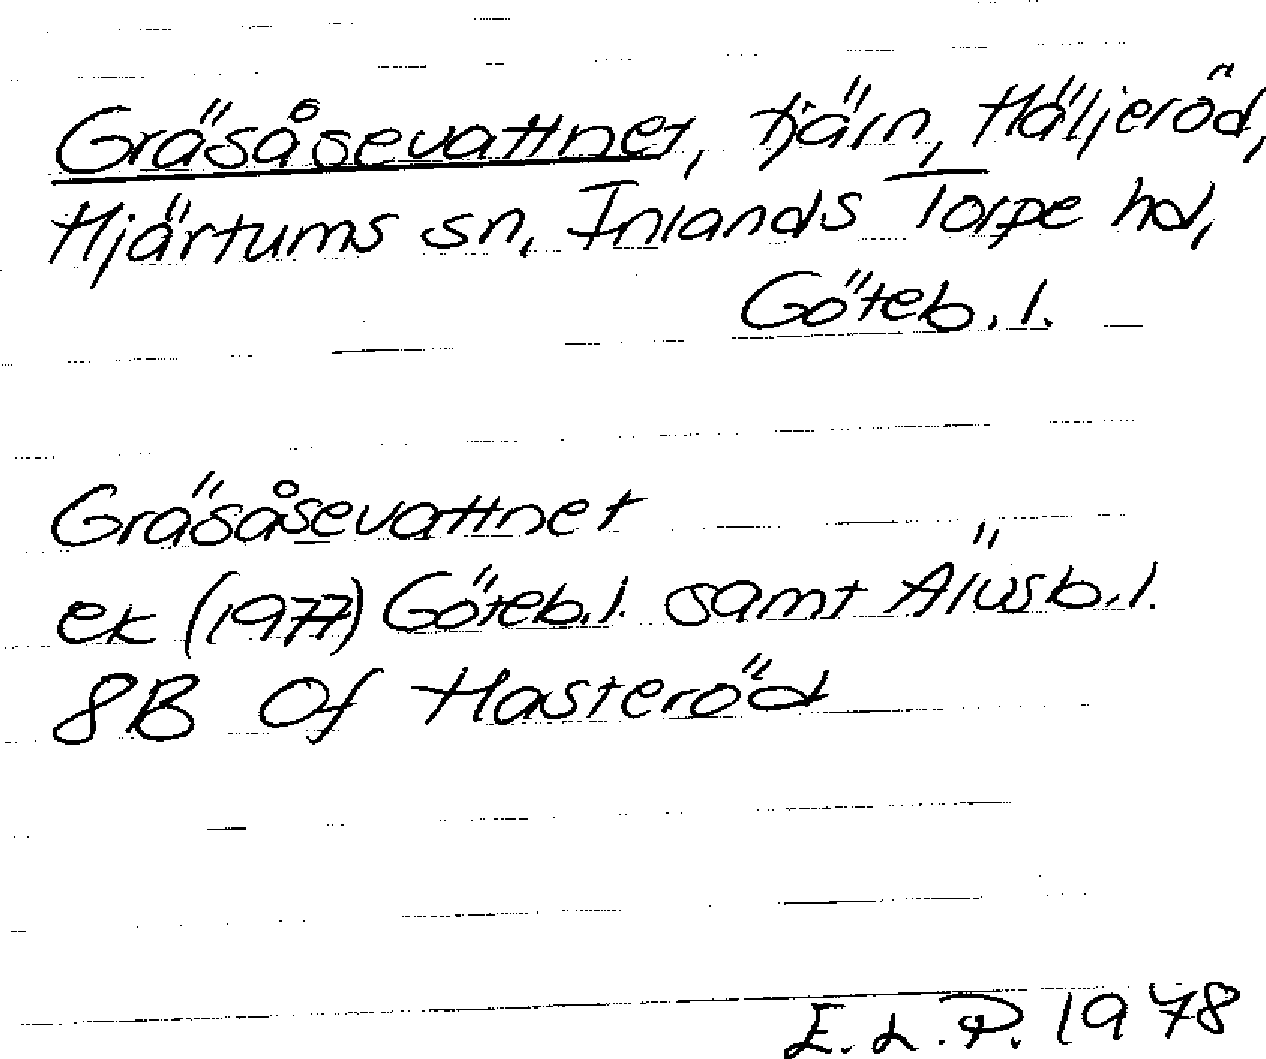 Gräsåsevattnet, tjärn, Häljeröd,
Hjärtums sn, Inlands Torpe hd,
Göteb. l.
Gräsåsevattnet
ek (1977) Göteb. l. samt Älvsb. l.
8B Of Hasteröd
E. L. P. 1978